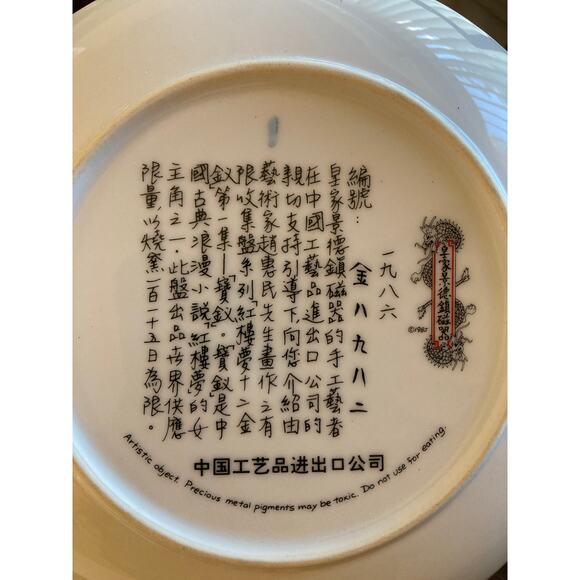 皇家景德鎮磁器
©1985
一九八六
編號：金八九八二
皇家景德鎮磁器的手工藝者
在中國工藝品進出口公司的
親切支持引導下，向您介紹由
藝術家趙惠民先生畫作之有
限收集盤系列「紅樓夢十二金
釵」第一集—「寶釵」。「寶釵」是中
國古典浪漫小說「紅樓夢」的女
主角之一．此盤出品世界供應
限量以燒窯一百一十五日為限。
中国工艺品进出口公司
Artistic object. Precious metal pigments may be toxic. Do not use for eating.